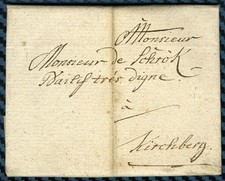 à Monsieur
Monsieur de Schrök
Bailif très digne
à
Kirchberg.